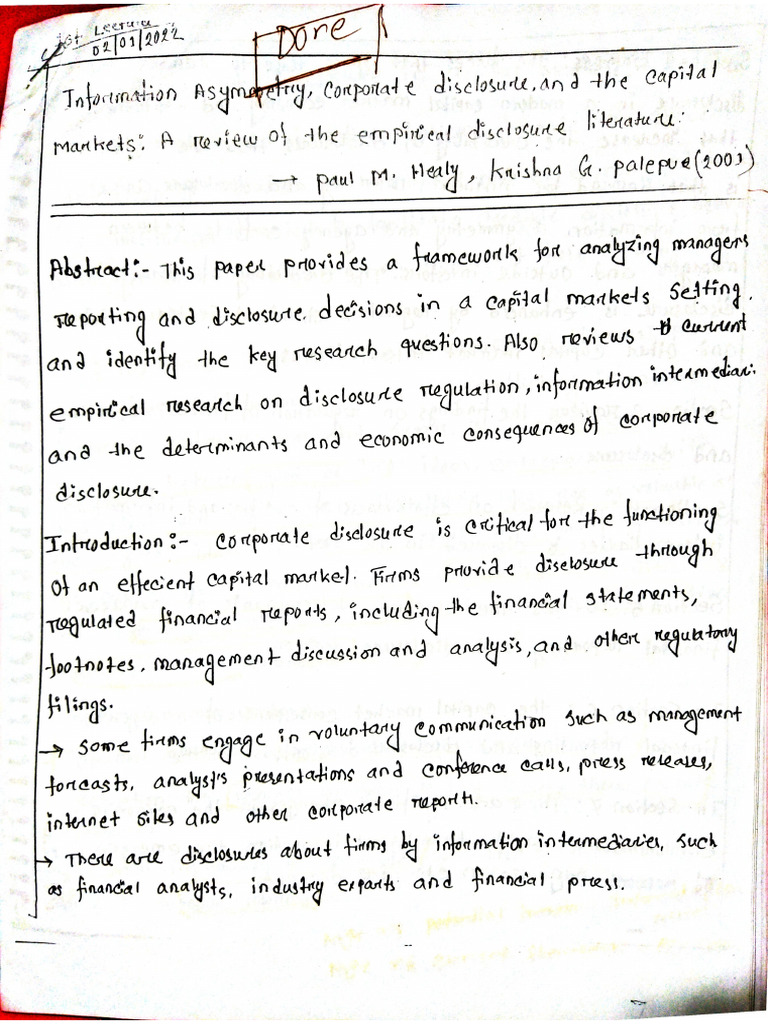 1st Lecture
02/01/2022
Done
Information Asymmetry, corporate disclosure, and the capital
markets: A review of the empirical disclosure literature:
→ Paul M. Healy, Krishna G. Palepue (2001)
Abstract:- This paper provides a framework for analyzing managers
reporting and disclosure decisions in a capital markets setting.
and identify the key research questions. Also reviews current
empirical research on disclosure regulation, information intermediari.
and the determinants and economic consequences of corporate
disclosure.
Introduction:- corporate disclosure is critical for the functioning
of an effecient capital market. Firms provide disclosure through
regulated financial reports, including the financial statements,
footnotes, management discussion and analysis, and other regulatory
filings.
→ Some firms engage in voluntary communication such as management
forcasts, analyst's presentations and conference calls, press releases,
internet sites and other corporate reports.
→ There are disclosures about firms by information intermediaries, such
as financial analysts, industry experts and financial press.